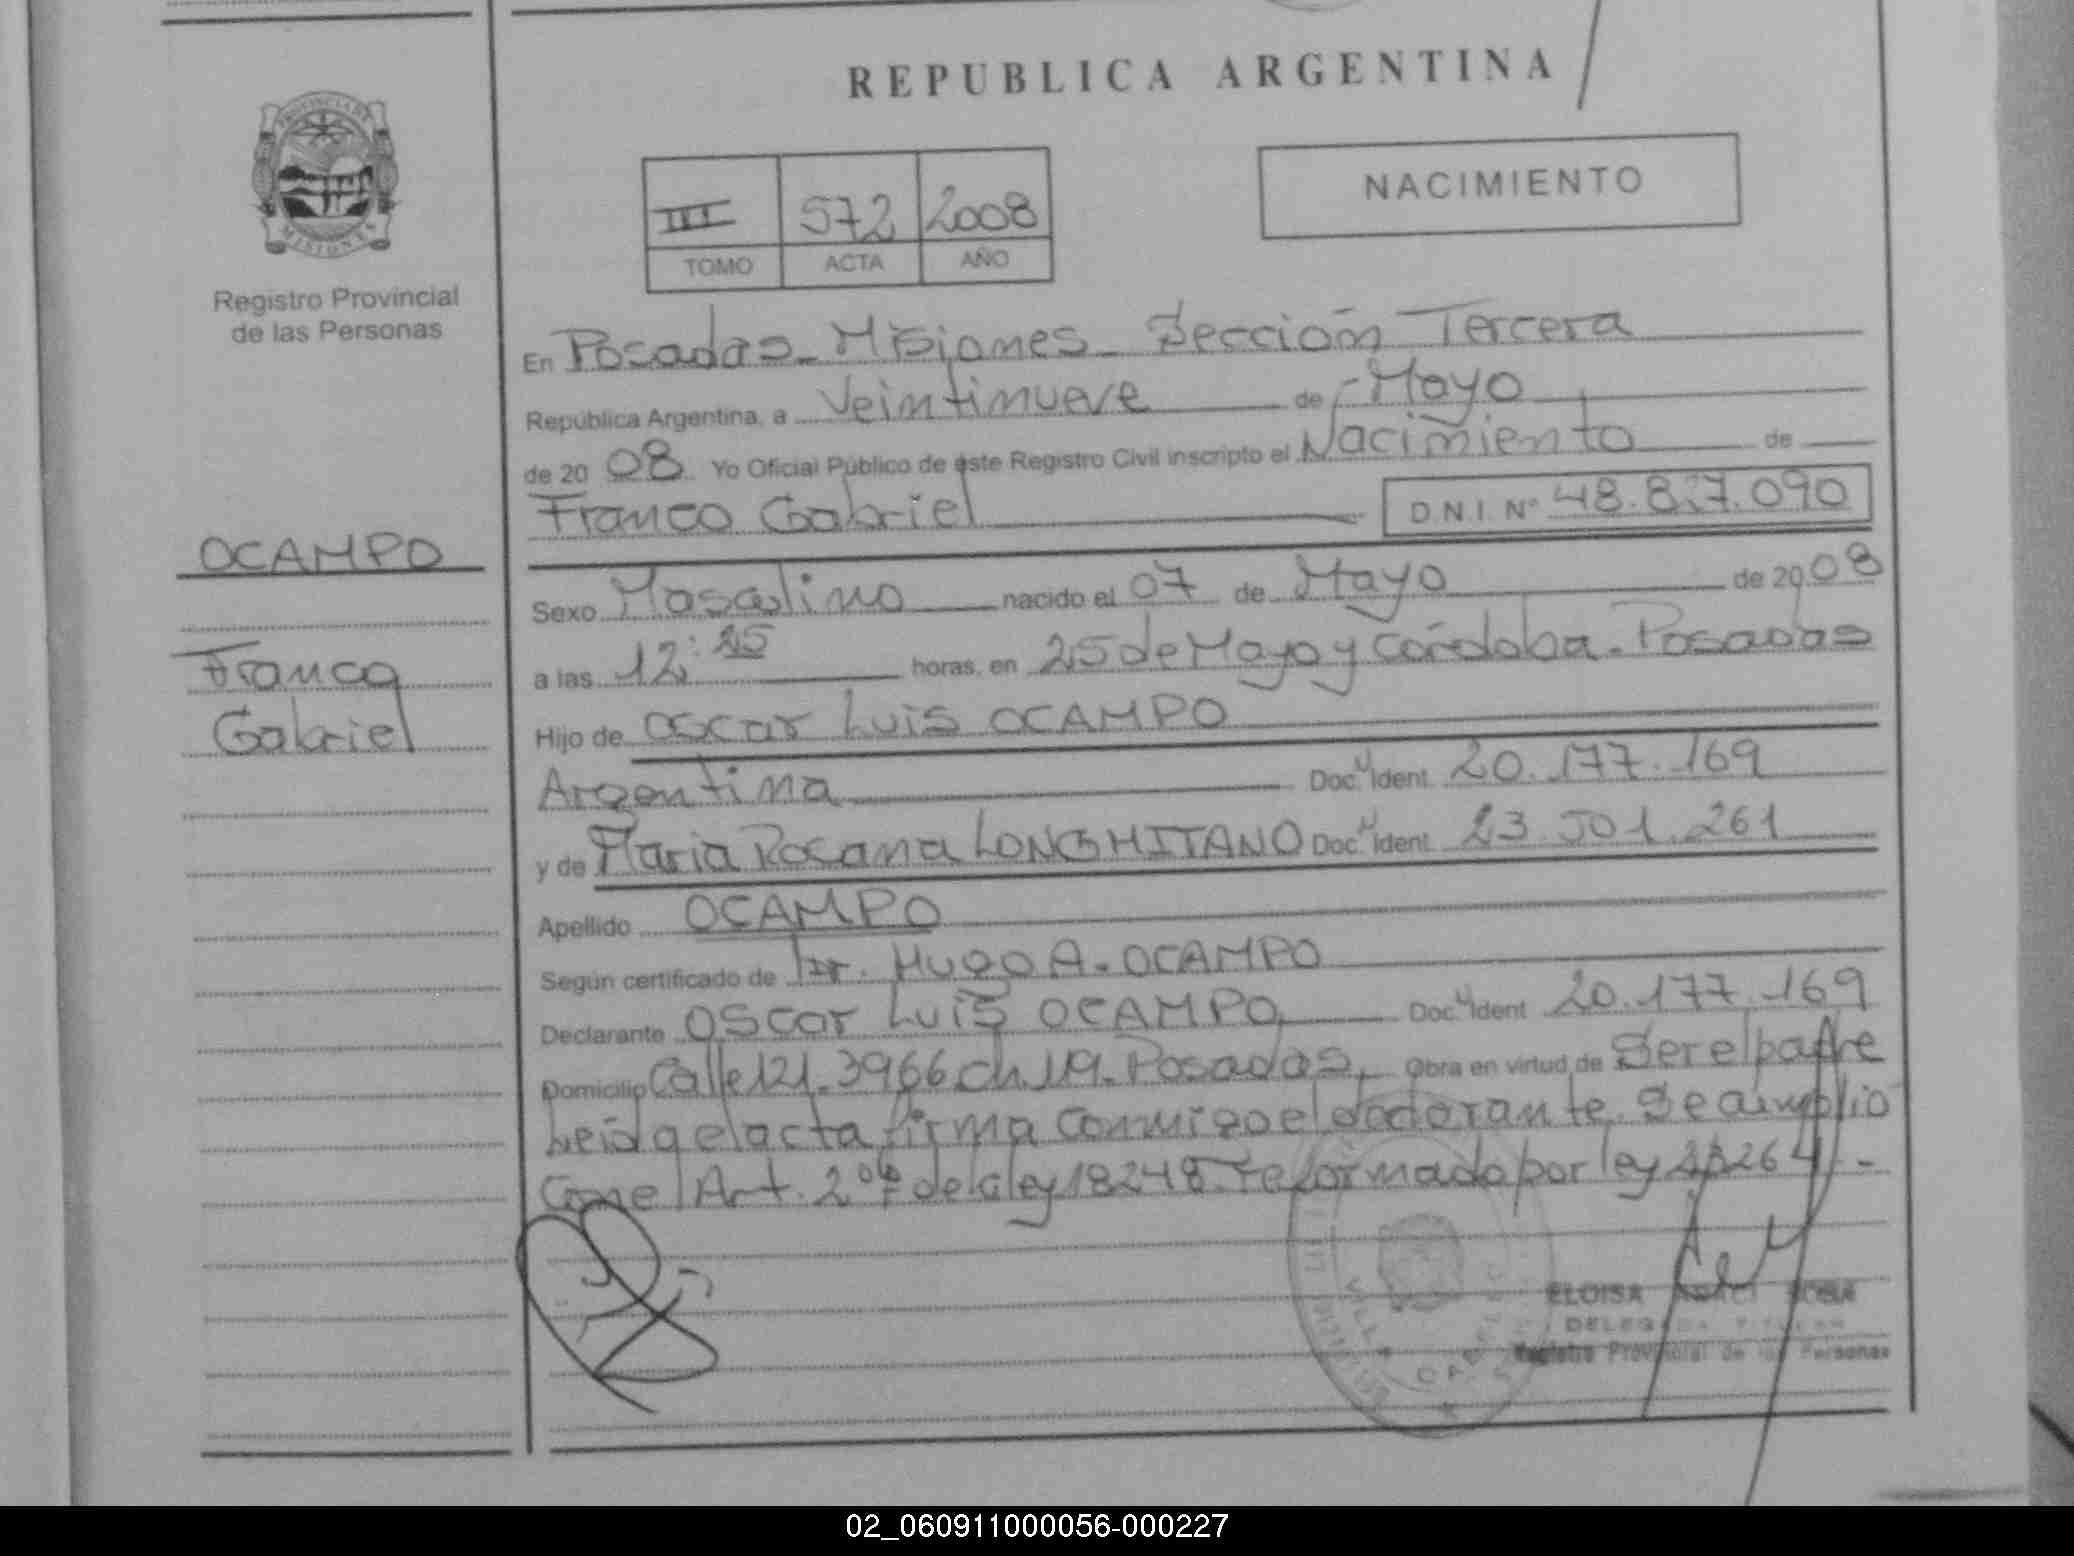 REPUBLICA ARGENTINA
PROVINCIA DE
MISIONES
Registro Provincial
de las Personas
III 572 2008
TOMO ACTA AÑO
NACIMIENTO
En Posadas - Misiones - Sección Tercera
República Argentina, a Veintinueve de Mayo
de 20 08 Yo Oficial Público de este Registro Civil inscripto el Nacimiento de
Franco Gabriel D.N.I. Nº
OCAMPO
Franco
Gabriel
Sexo Masculino nacido el 07 de Mayo de 20 08
a las 12: horas, en 25 de Mayo y Córdoba - Posadas
Hijo de Oscar Luis OCAMPO
Argentina Doc. Ident. 20.177.169
y de Maria Rosana LONGHITANO Doc. Ident. 23.501.261
Apellido OCAMPO
Según certificado de Dr. Hugo A. OCAMPO
Declarante Oscar Luis OCAMPO Doc. Ident 20.177.169
Domicilio Calle 121 - 3966 ch. 119 - Posadas, Obra en virtud de Ser el padre
Leida el acta firma conmigo el declarante. Se amplio
Con el Art. 2º de la ley 18248 reformado por ley 264 -
ELOISA
DELEGADA TITULAR
Registro Provincial de las Personas
02_060911000056-000227